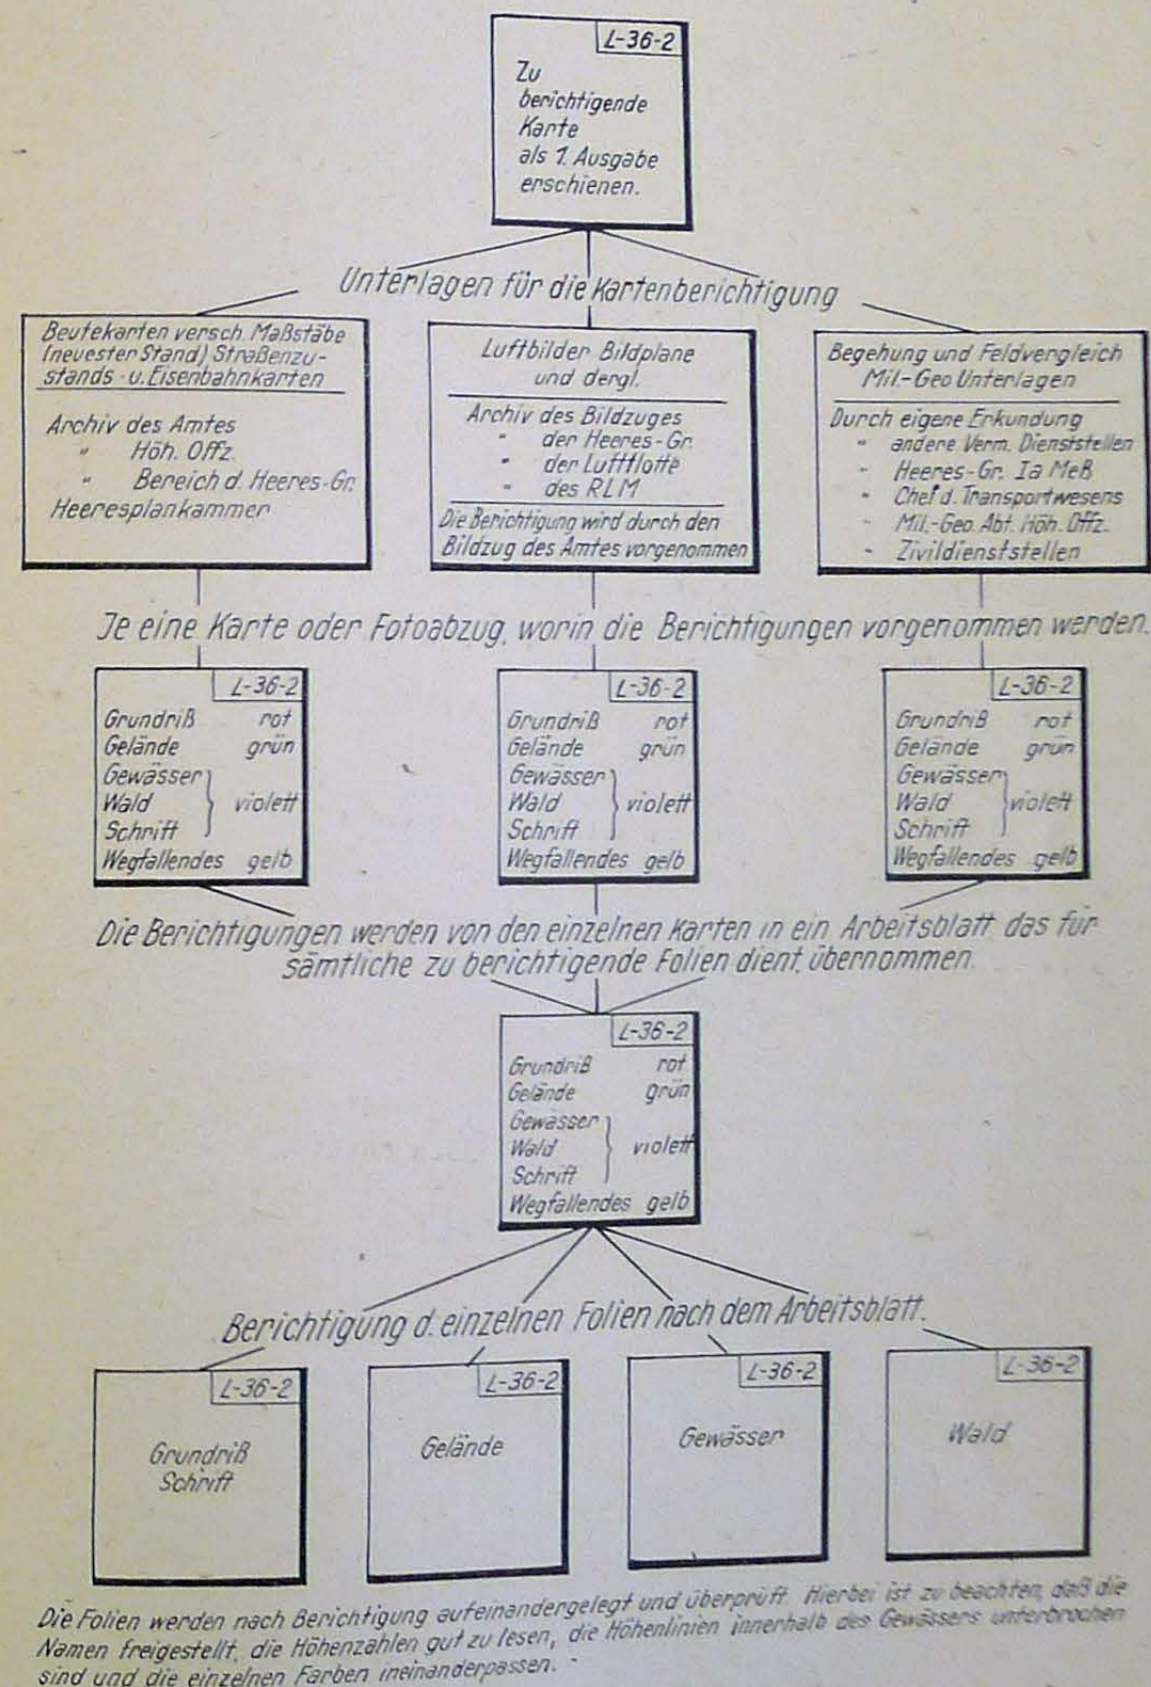 L-36-2
Zu
berichtigende
Karte
als 1. Ausgabe
erschienen.
Unterlagen für die Kartenberichtigung
Beutekarten versch. Maßstäbe
(neuester Stand) Straßenzu-
stands- u. Eisenbahnkarten
Archiv des Amtes
" Höh. Offz.
" Bereich d. Heeres-Gr.
Heeresplankammer
Luftbilder Bildplane
und dergl.
Archiv des Bildzuges
" der Heeres-Gr.
" der Luftflotte
" des RLM
Die Berichtigung wird durch den
Bildzug des Amtes vorgenommen
Begehung und Feldvergleich
Mil.-Geo Unterlagen
Durch eigene Erkundung
" andere Verm. Dienststellen
" Heeres-Gr. Ia Meß
" Chef d. Transportwesens
" Mil.-Geo. Abt. Höh. Offz.
" Zivildienststellen
Je eine Karte oder Fotoabzug, worin die Berichtigungen vorgenommen werden.
L-36-2
Grundriß rot
Gelände grün
Gewässer
Wald violett
Schrift
Wegfallendes gelb
L-36-2
Grundriß rot
Gelände grün
Gewässer
Wald violett
Schrift
Wegfallendes gelb
L-36-2
Grundriß rot
Gelände grün
Gewässer
Wald violett
Schrift
Wegfallendes gelb
Die Berichtigungen werden von den einzelnen Karten in ein Arbeitsblatt das für
sämtliche zu berichtigende Folien dient, übernommen.
L-36-2
Grundriß rot
Gelände grün
Gewässer
Wald violett
Schrift
Wegfallendes gelb
Berichtigung d. einzelnen Folien nach dem Arbeitsblatt.
L-36-2
Grundriß
Schrift
L-36-2
Gelände
L-36-2
Gewässer
L-36-2
Wald
Die Folien werden nach Berichtigung aufeinandergelegt und überprüft. Hierbei ist zu beachten, daß die
Namen freigestellt, die Höhenzahlen gut zu lesen, die Höhenlinien innerhalb des Gewässers unterbrochen
sind und die einzelnen Farben ineinanderpassen.